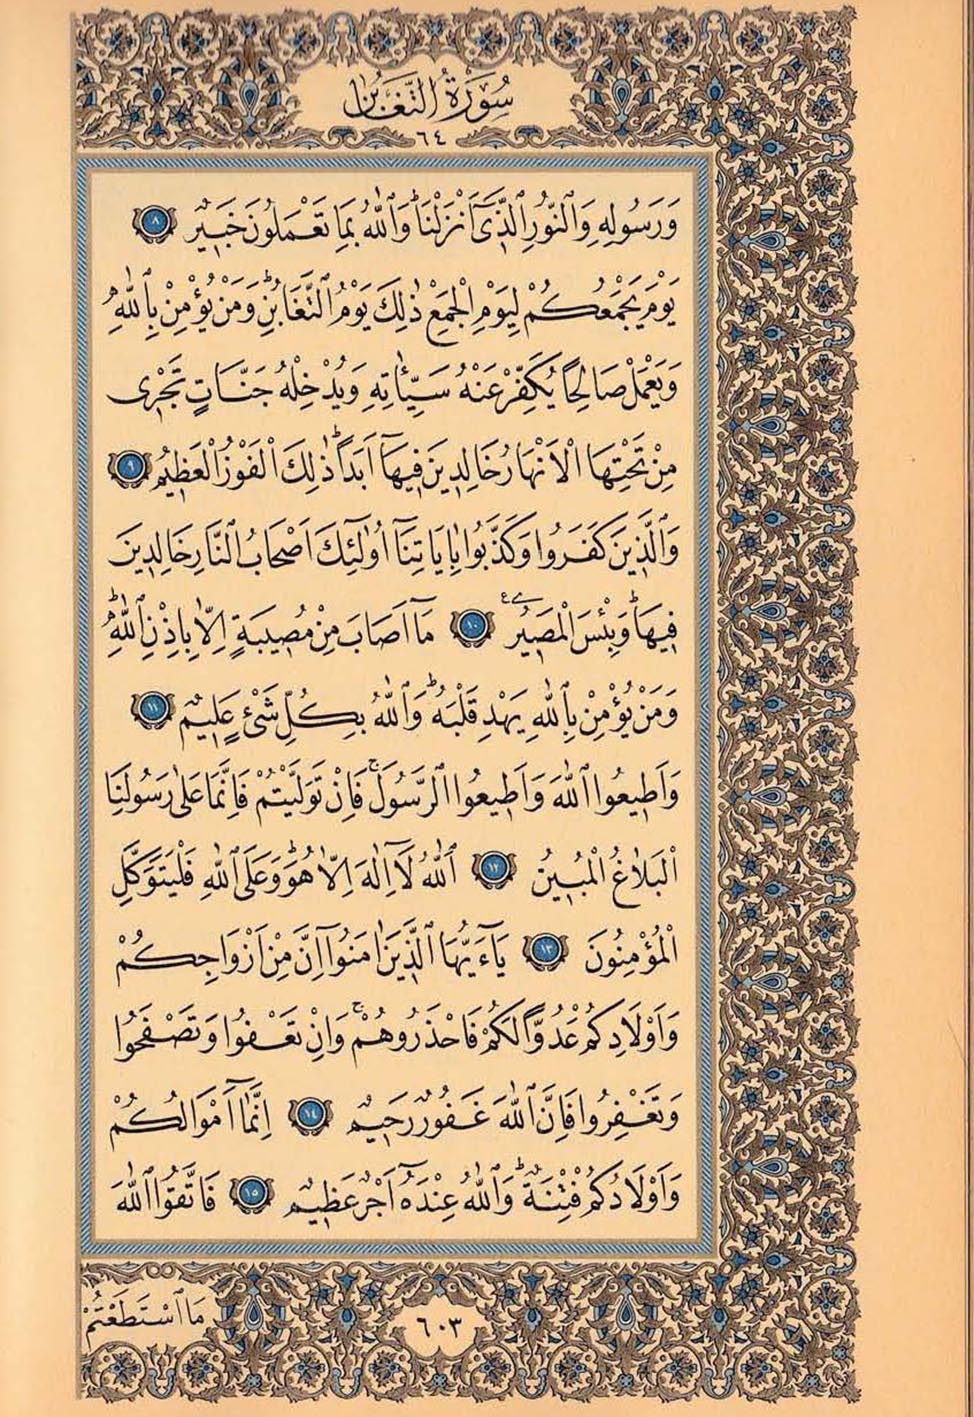 سُورَةُ التَّغَابُنِ
٦٤
وَرَسُولِهِ وَالنُّورِ الَّذِٓي اَنْزَلْنَاۜ وَاللّٰهُ بِمَا تَعْمَلُونَ خَبِيرٌ ٨
يَوْمَ يَجْمَعُكُمْ لِيَوْمِ الْجَمْعِ ذٰلِكَ يَوْمُ التَّغَابُنِۜ وَمَنْ يُؤْمِنْ بِاللّٰهِ
وَيَعْمَلْ صَالِحًا يُكَفِّرْ عَنْهُ سَيِّـَٔاتِهِ وَيُدْخِلْهُ جَنَّاتٍ تَجْرِى
مِنْ تَحْتِهَا الْاَنْهَارُ خَالِدِينَ فِيهَٓا اَبَدًاۜ ذٰلِكَ الْفَوْزُ الْعَظِيمُ ٩
وَالَّذِينَ كَفَرُوا وَكَذَّبُوا بِاٰيَاتِنَٓا اُو۬لٰٓئِكَ اَصْحَابُ النَّارِ خَالِدِينَ
فِيهَاۜ وَبِئْسَ الْمَصِيرُ ١٠ مَٓا اَصَابَ مِنْ مُصِيبَةٍ اِلَّا بِاِذْنِ اللّٰهِۜ
وَمَنْ يُؤْمِنْ بِاللّٰهِ يَهْدِ قَلْبَهُۜ وَاللّٰهُ بِكُلِّ شَىْءٍ عَلِيمٌ ١١
وَاَطِيعُوا اللّٰهَ وَاَطِيعُوا الرَّسُولَۚ فَاِنْ تَوَلَّيْتُمْ فَاِنَّمَا عَلٰى رَسُولِنَا
الْبَلَاغُ الْمُبِينُ ١٢ اَللّٰهُ لَٓا اِلٰهَ اِلَّا هُوَۜ وَعَلَى اللّٰهِ فَلْيَتَوَكَّلِ
الْمُؤْمِنُونَ ١٣ يَٓا اَيُّهَا الَّذِينَ اٰمَنُٓوا اِنَّ مِنْ اَزْوَاجِكُمْ
وَاَوْلَادِكُمْ عَدُوًّا لَكُمْ فَاحْذَرُوهُمْۚ وَاِنْ تَعْفُوا وَتَصْفَحُوا
وَتَغْفِرُوا فَاِنَّ اللّٰهَ غَفُورٌ رَحِيمٌ ١٤ اِنَّمَٓا اَمْوَالُكُمْ
وَاَوْلَادُكُمْ فِتْنَةٌۜ وَاللّٰهُ عِنْدَهُٓ اَجْرٌ عَظِيمٌ ١٥ فَاتَّقُوا اللّٰهَ
مَا اسْتَطَعْتُمْ
٦٠٣